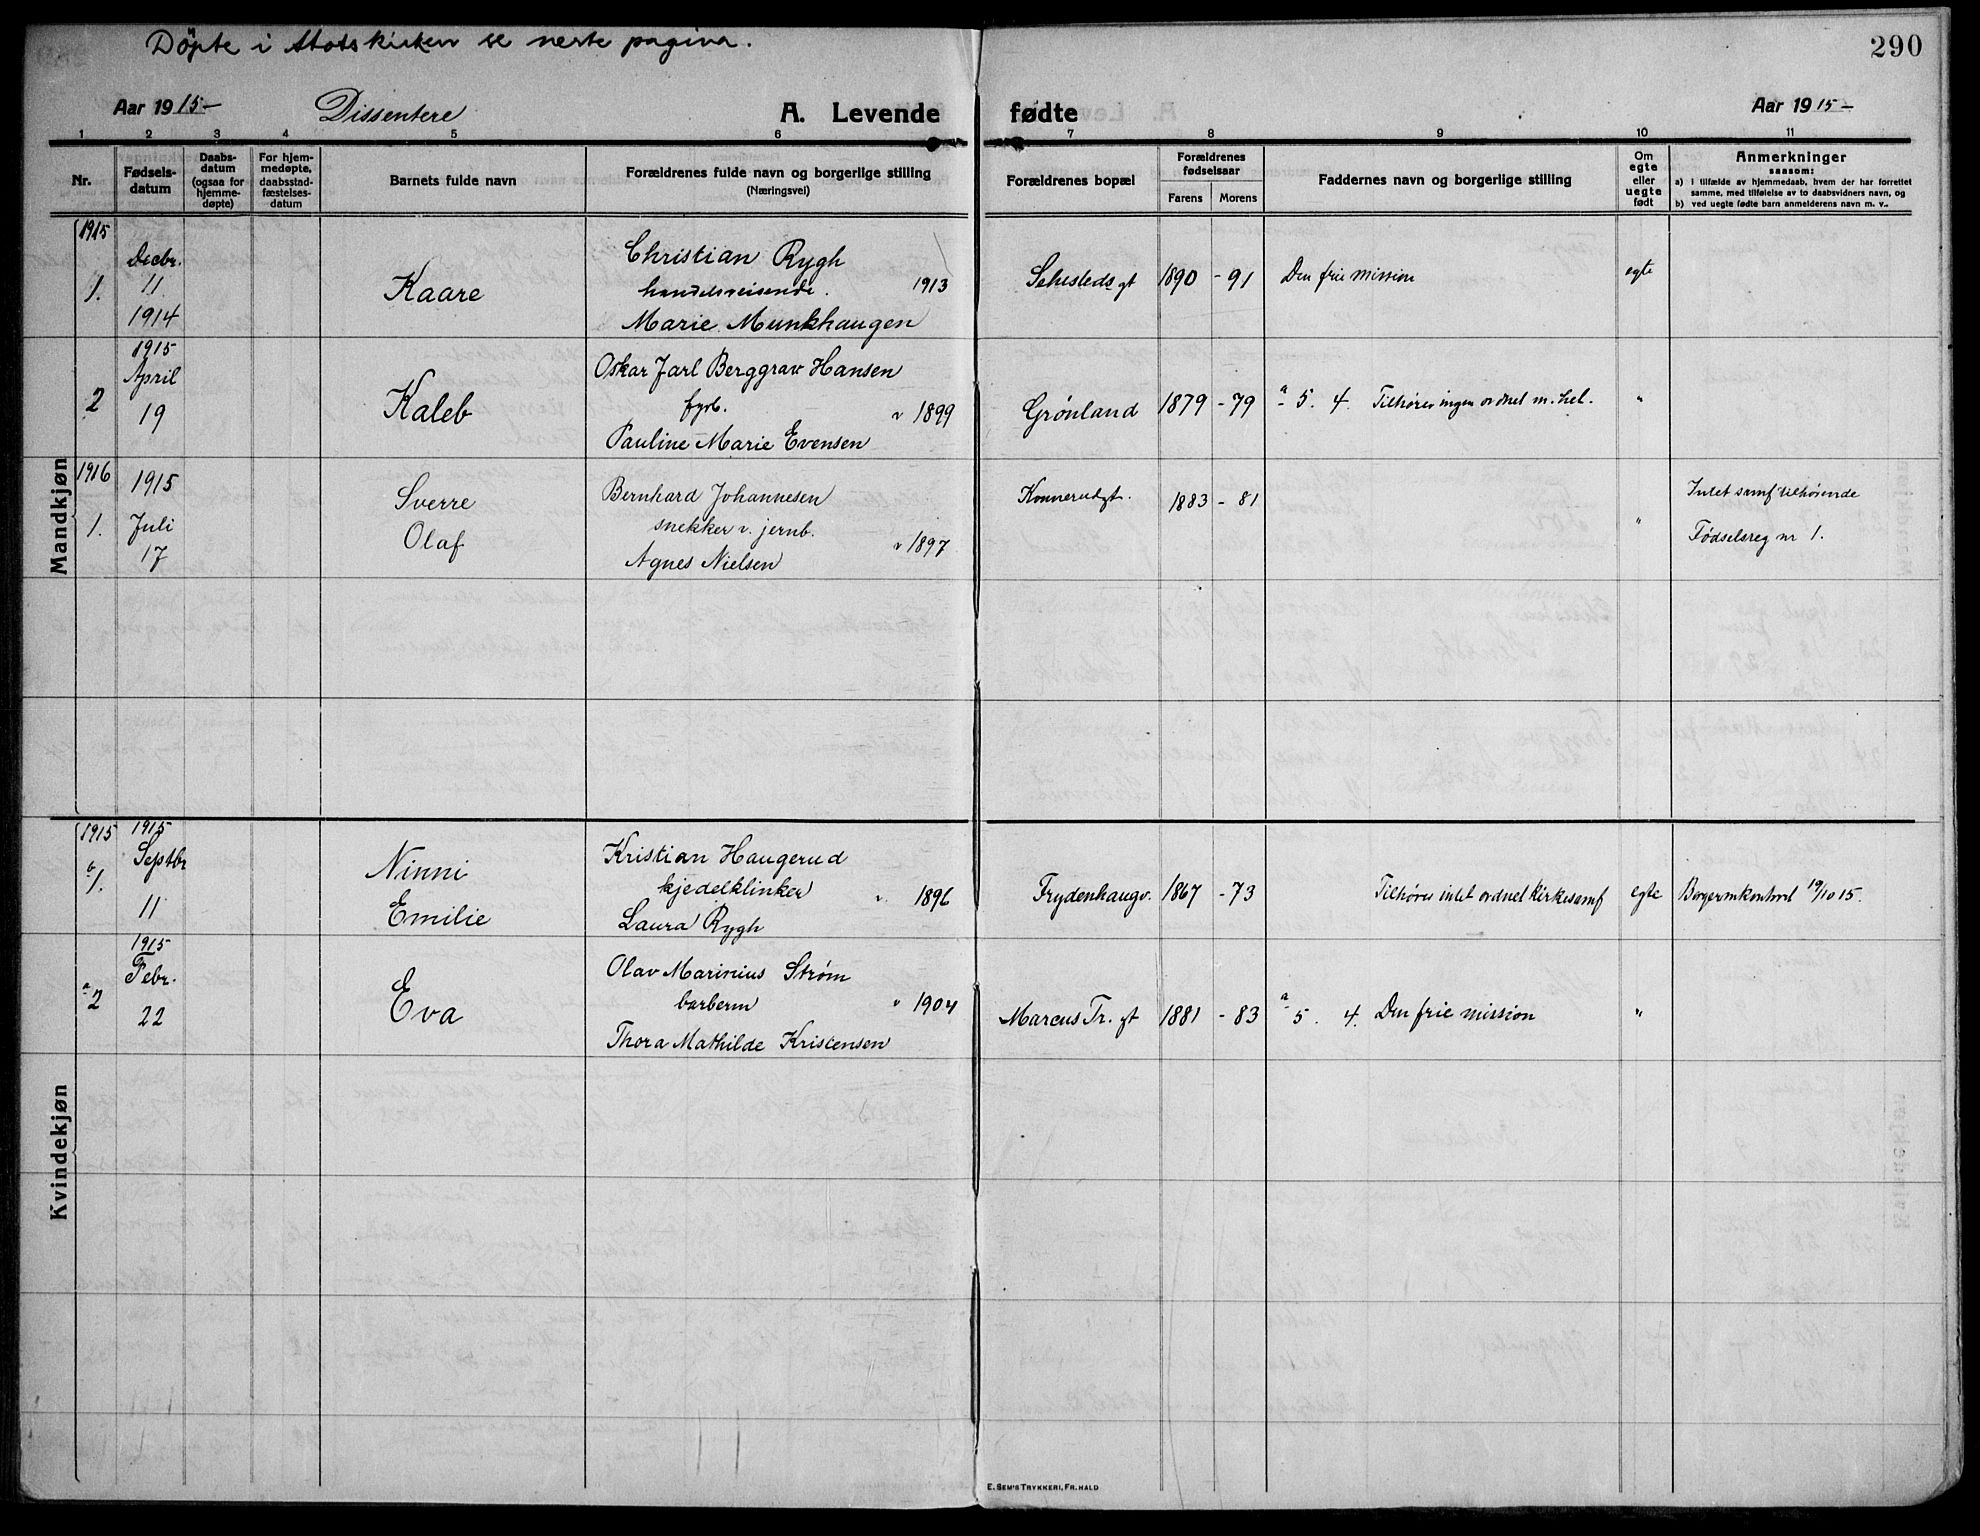 Døpte i Statskirken se neste pagina.
290
Aar 1915-
Dissentere
A. Levende fødte
Aar 1915-
1 2 3 4 5 6 7 8 9 10 11
Nr.
Fødsels-
datum
Daabs-
datum
(ogsaa for
hjemme-
døpte)
For hjem-
medøpte,
daabsstad-
fæstelses-
datum
Barnets fulde navn
Forældrenes fulde navn og borgerlige stilling
(Næringsvei)
Forældrenes bopæl
Forældrenes
fødselsaar
Farens Morens
Faddernes navn og borgerlige stilling
Om
egte
eller
uegte
født
Anmerkninger
saasom:
a) i tilfælde av hjemmedaab, hvem der har forrettet
samme, med tilføielse av to daabsvidners navn, og
b) ved uegte fødte barn anmelderens navn m. v.
Mandkjøn
1915
1.
Decbr.
11.
1914
Kaare
Christian Rygh
handelsreisende. 1913
Marie Munkhaugen
Sehesteds gt 1890 - 91 Den frie mission egte
2
1915
April
19
Kaleb
Oskar Jarl Berggrav Hansen
fyrb. " 1899
Pauline Marie Evensen
Grønland 1879 - 79 a 5. 4. Tilhører ingen ordnet m.hel. "
1916
1.
1915
Juli
17
Sverre
Olaf
Bernhard Johannesen
snekker v. jernb.
" 1897
Agnes Nielsen
Konnerudgt. 1883 - 81 "
Intet samf tilhørende
Fødselsreg nr 1.
Kvindekjøn
1915
b 1.
1915
Septbr
11
Ninni
Emilie
Kristian Haugerud
kjedelklinker " 1896
Laura Rygh
Frydenhaugv. 1867 - 73 Tilhører intet ordnet kirkesamf egte Borgermkontoret 19/10 15.
a 2
1915
Febr.
22
Eva
Olav Marinius Strøm
barberm " 1904
Thora Mathilde Kristensen
Marcus Tr. gt 1881 - 83 a 5. 4. Den frie mission "
E. SEM'S TRYKKERI, FR.HALD